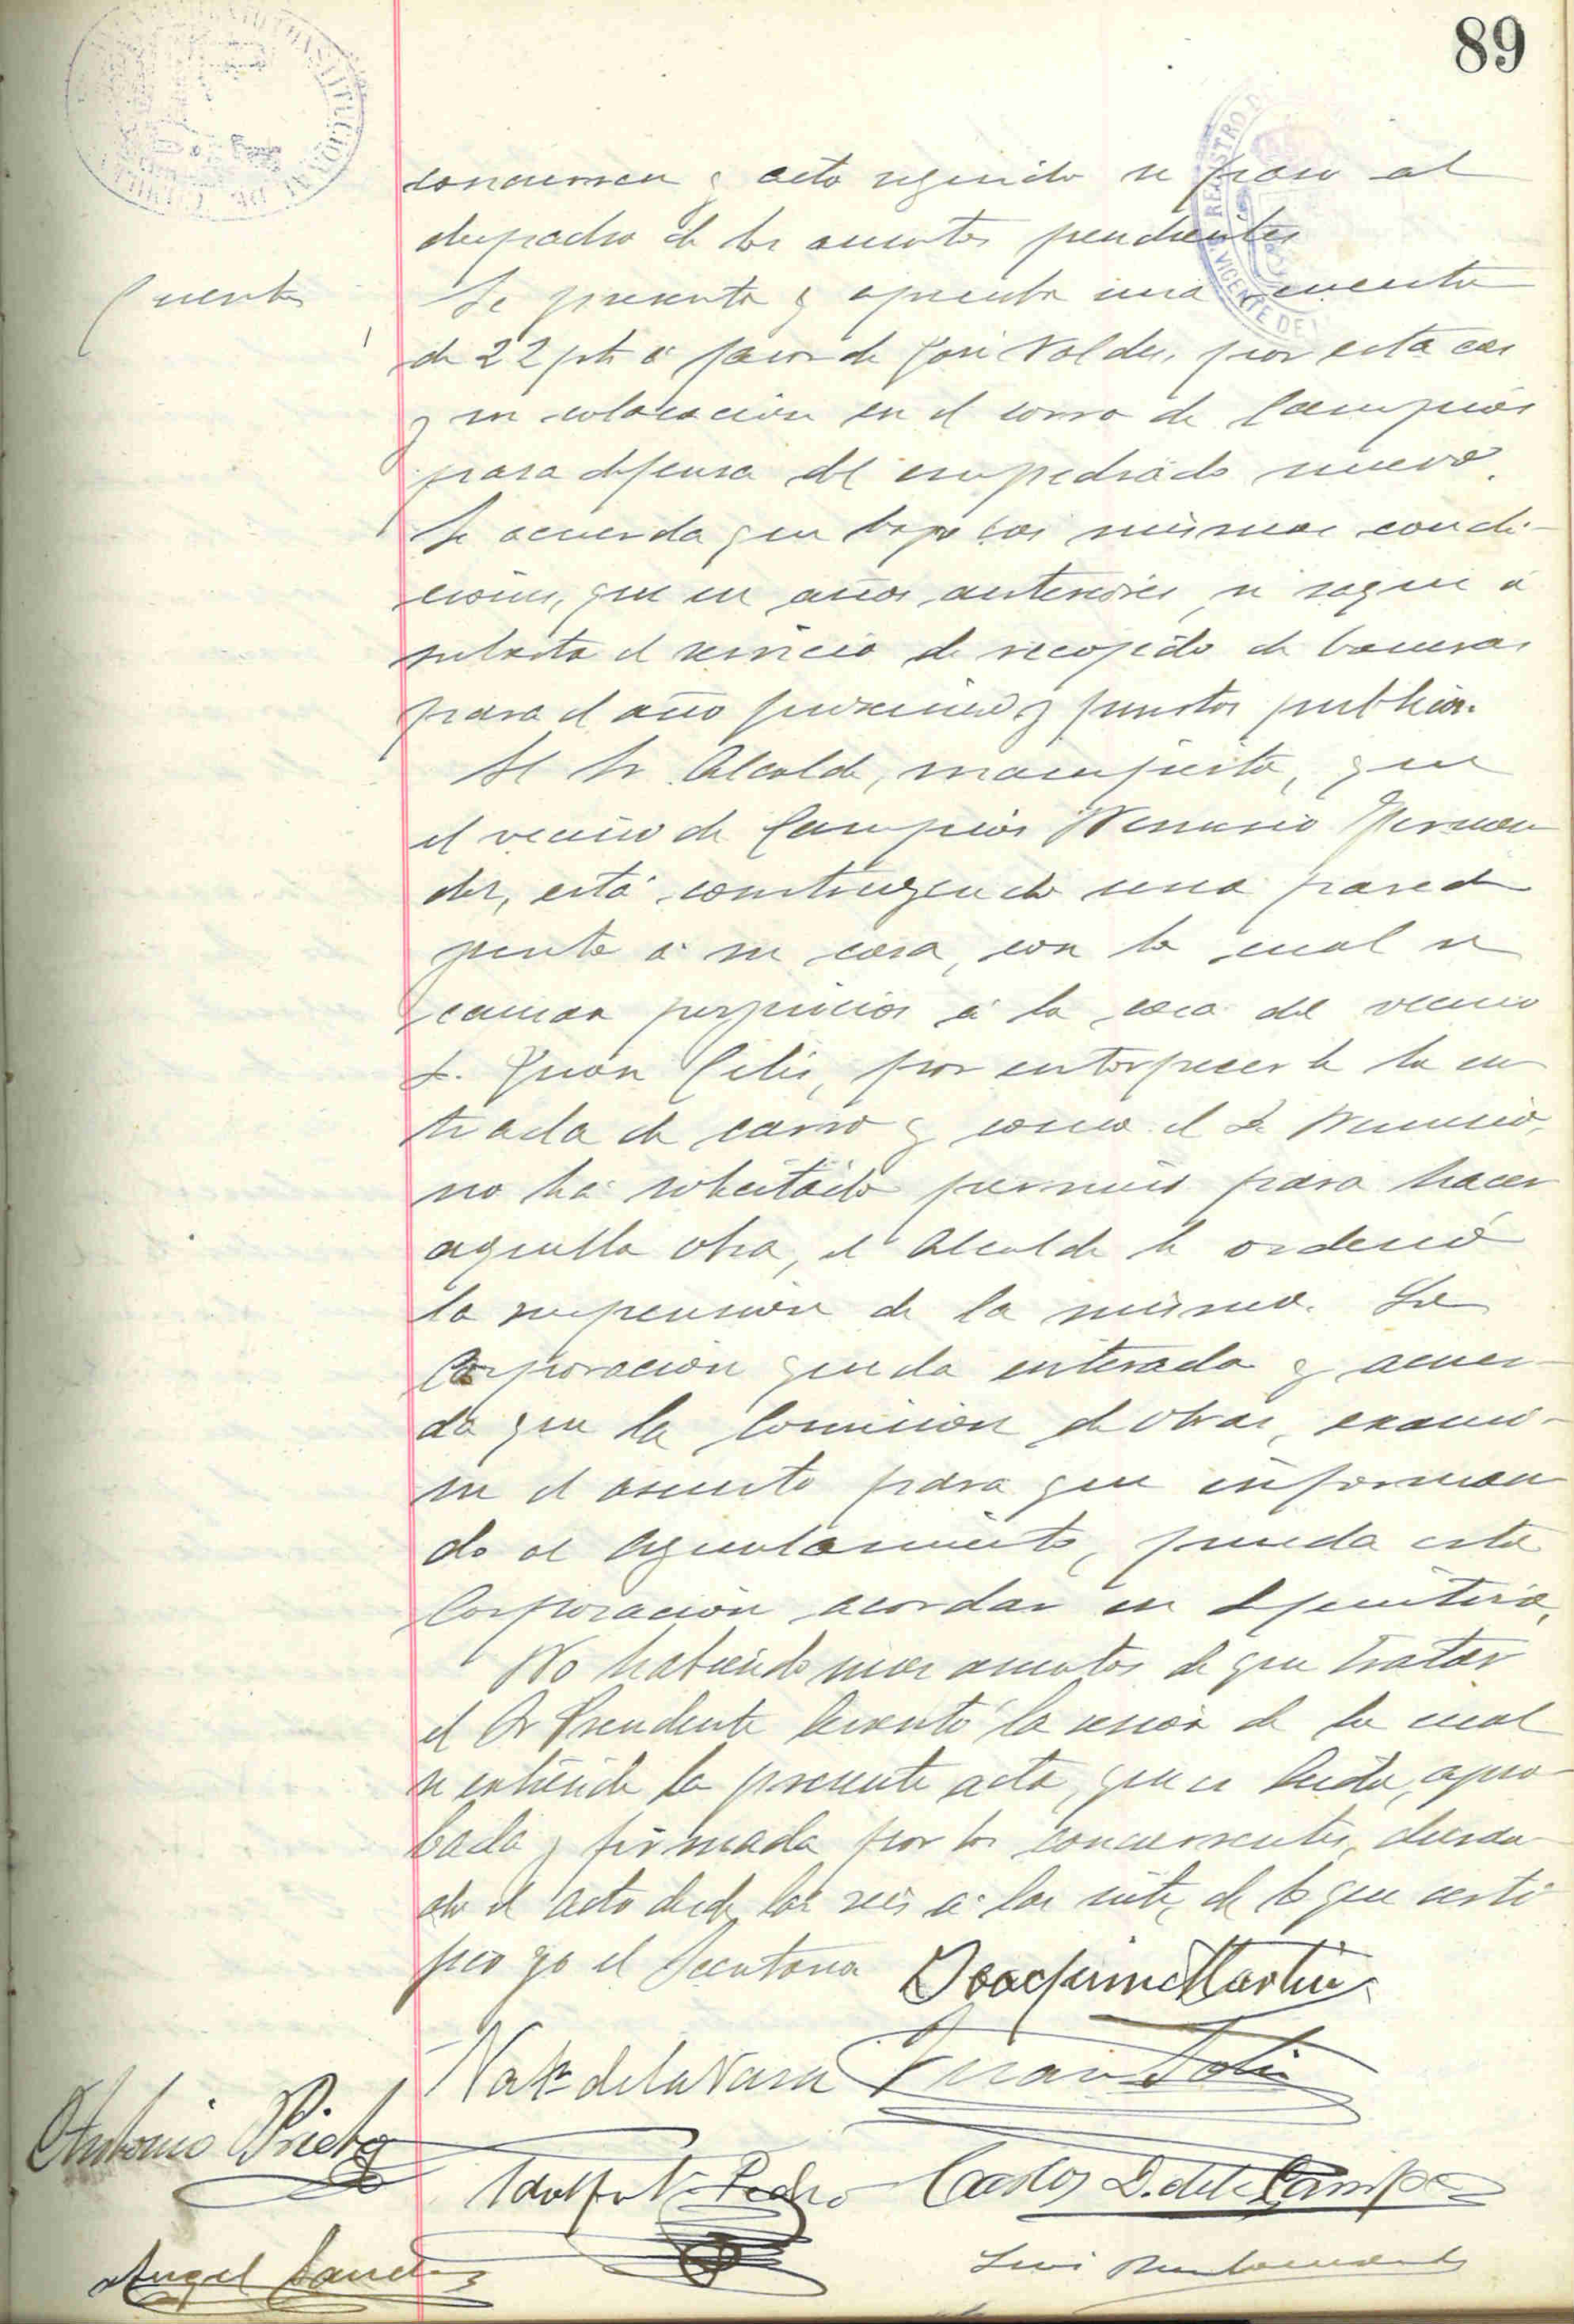 89
concurren y acto seguido se paso al
despacho de los asuntos pendientes
Cuentas
Se presenta y aprueba una cuenta
de 22 pts á favor de José Valdes, por estacas
y su colocacion en el corro de Campiás
para defensa del empedrado nuevo.
Se acuerda que bajo las mismas condi-
ciones, que en años anteriores, se saque á
subasta el servicio de recogido de basuras
para el año proximo y puestos publicos.
El Sr. Alcalde, manifiesta, que
el vecino de Campiás Nemesio Hernan
dez, está construyendo una pared
frente á su casa, con lo cual se
causan perjuicios á la casa del vecino
D. Juan Celis, por entorpecerle la en
trada de carro y como el D. Nemesio,
no ha solicitado permiso para hacer
aquella obra, el Alcalde le ordenó
la suspension de la misma. La
Corporacion queda enterada y acuer-
da que la Comision de obras, exami-
ne el asunto para que informan
do al Ayuntamiento, pueda esta
Corporacion acordar en definitiva.
No habiendo mas asuntos de que tratar
el Sr Presidente levantó la sesion de la cual
se extiende la presente acta, que es leida, apro-
bada y firmada por los concurrentes, duran
do el acto desde las seis á las siete, de lo que certi
fico yo el Secretario Joaquin Martin
Nat. de la Vara Juan
Antonio Prieto
Adolfo Pedro Carlos D. del Campo
Angel Sanchez Luis